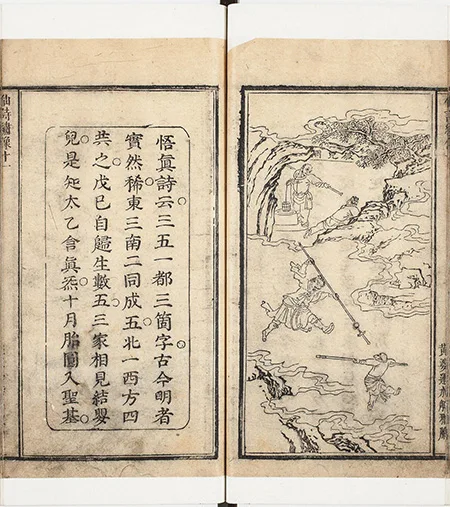 黃婆運水解邪胎
悟眞詩云三五一都三箇字古今明者
實然稀東三南二同成五北一西方四
共之戊己自歸生數五三家相見結嬰
兒是知太乙含眞炁十月胎圓入聖基